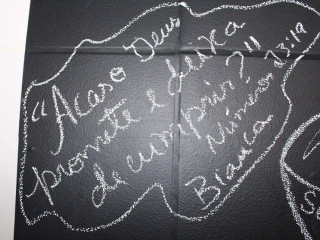 "Acaso Deus
promete e deixa
de cumprir?"
Números 23:19
Bianca